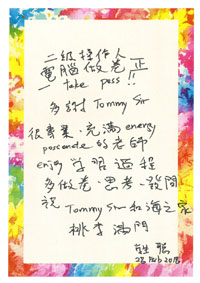 二級操作人
電腦做卷 正
一 take pass!!
多謝 Tommy Sir
很專業、充滿 energy
passionate 的老師
enjoy 學習過程
多做卷、思考、發問
祝
Tommy Sir 和海之家
桃李滿門
28 Feb 2018